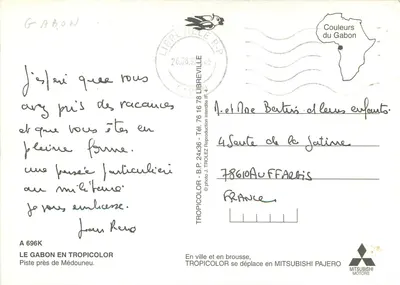 GABON
LIBREVILLE R.P.
Couleurs
du Gabon
J'espère que vous
avez pris des vacances
et que vous êtes en
pleine forme.
une pensée particulière
au militaire
je vous embrasse.
A 696K
LE GABON EN TROPICOLOR
Piste près de Médouneu.
TROPICOLOR - B.P. 24x36 - Tél. 76 16 78 LIBREVILLE
© photo J. TROLEZ Reproduction interdite
M. et Mme Bertin et leurs enfants.
4 Sente de la
78610 AUFFARGIS
FRANCE
En ville et en brousse,
TROPICOLOR se déplace en MITSUBISHI PAJERO
MITSUBISHI
MOTORS